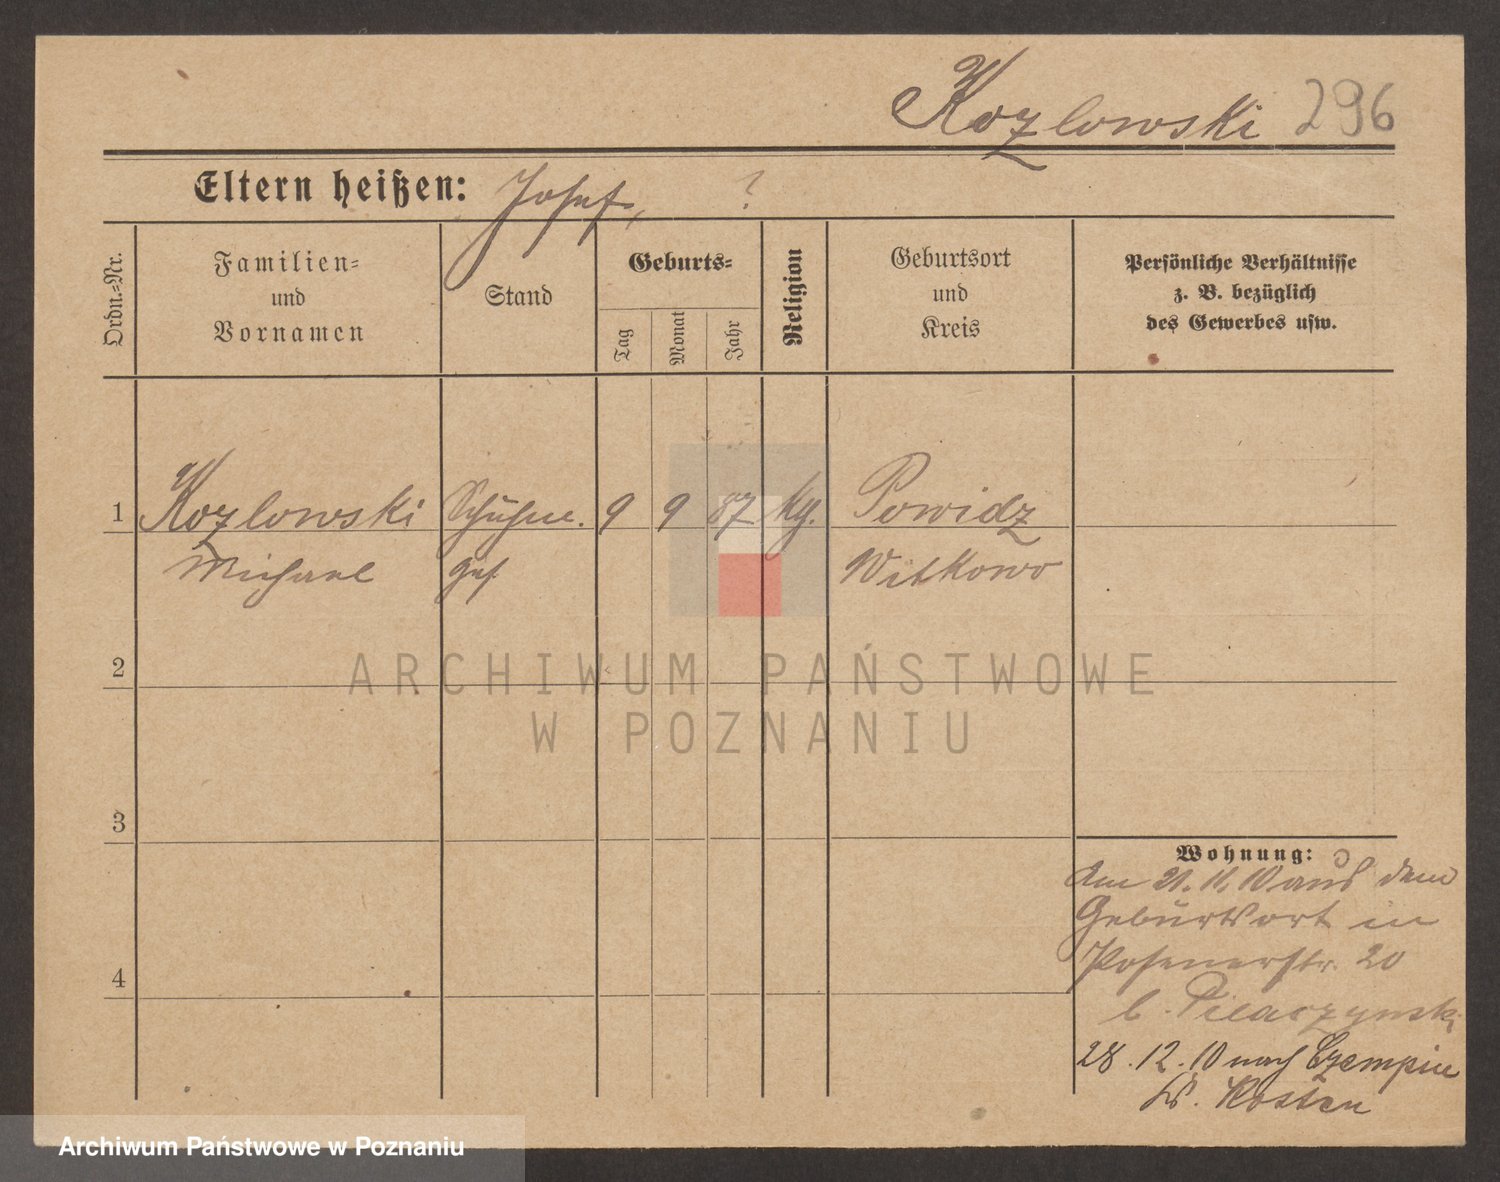 Kozlowski 296
Eltern heißen: Josef, ?
Ordn.=Nr.
Familien=
und
Vornamen
Stand
Geburts=
Tag
Monat
Jahr
Religion
Geburtsort
und
Kreis
Persönliche Verhältnisse
z. B. bezüglich
des Gewerbes usw.
1 Kozlowski Schuhm. 9 9 87 kg. Powidz
Michael Ges. Witkowo
2
3
4
Wohnung:
Am 21.11.10 aus dem
Geburtsort in
Posenerstr. 20
b. Pilaczynski
28.12.10 nach Czempin
Kr. Kosten
ARCHIWUM PAŃSTWOWE
W POZNANIU
Archiwum Państwowe w Poznaniu